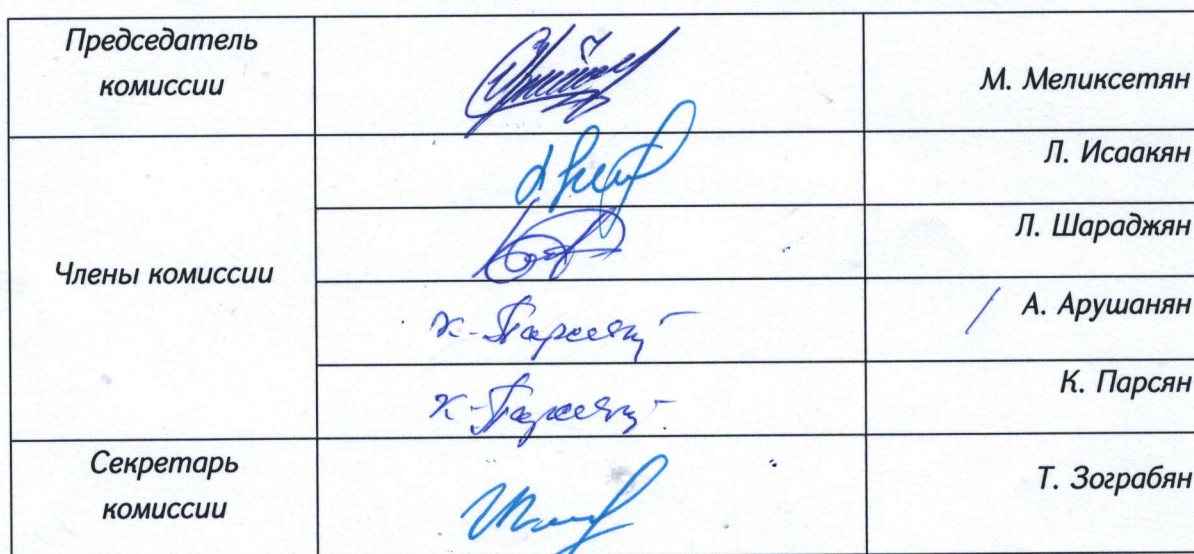 Председатель
комиссии
М. Меликсетян
Члены комиссии
Л. Исаакян
Л. Шараджян
К. Парсян
/ А. Арушанян
К. Парсян
К. Парсян
Секретарь
комиссии
Т. Зограбян